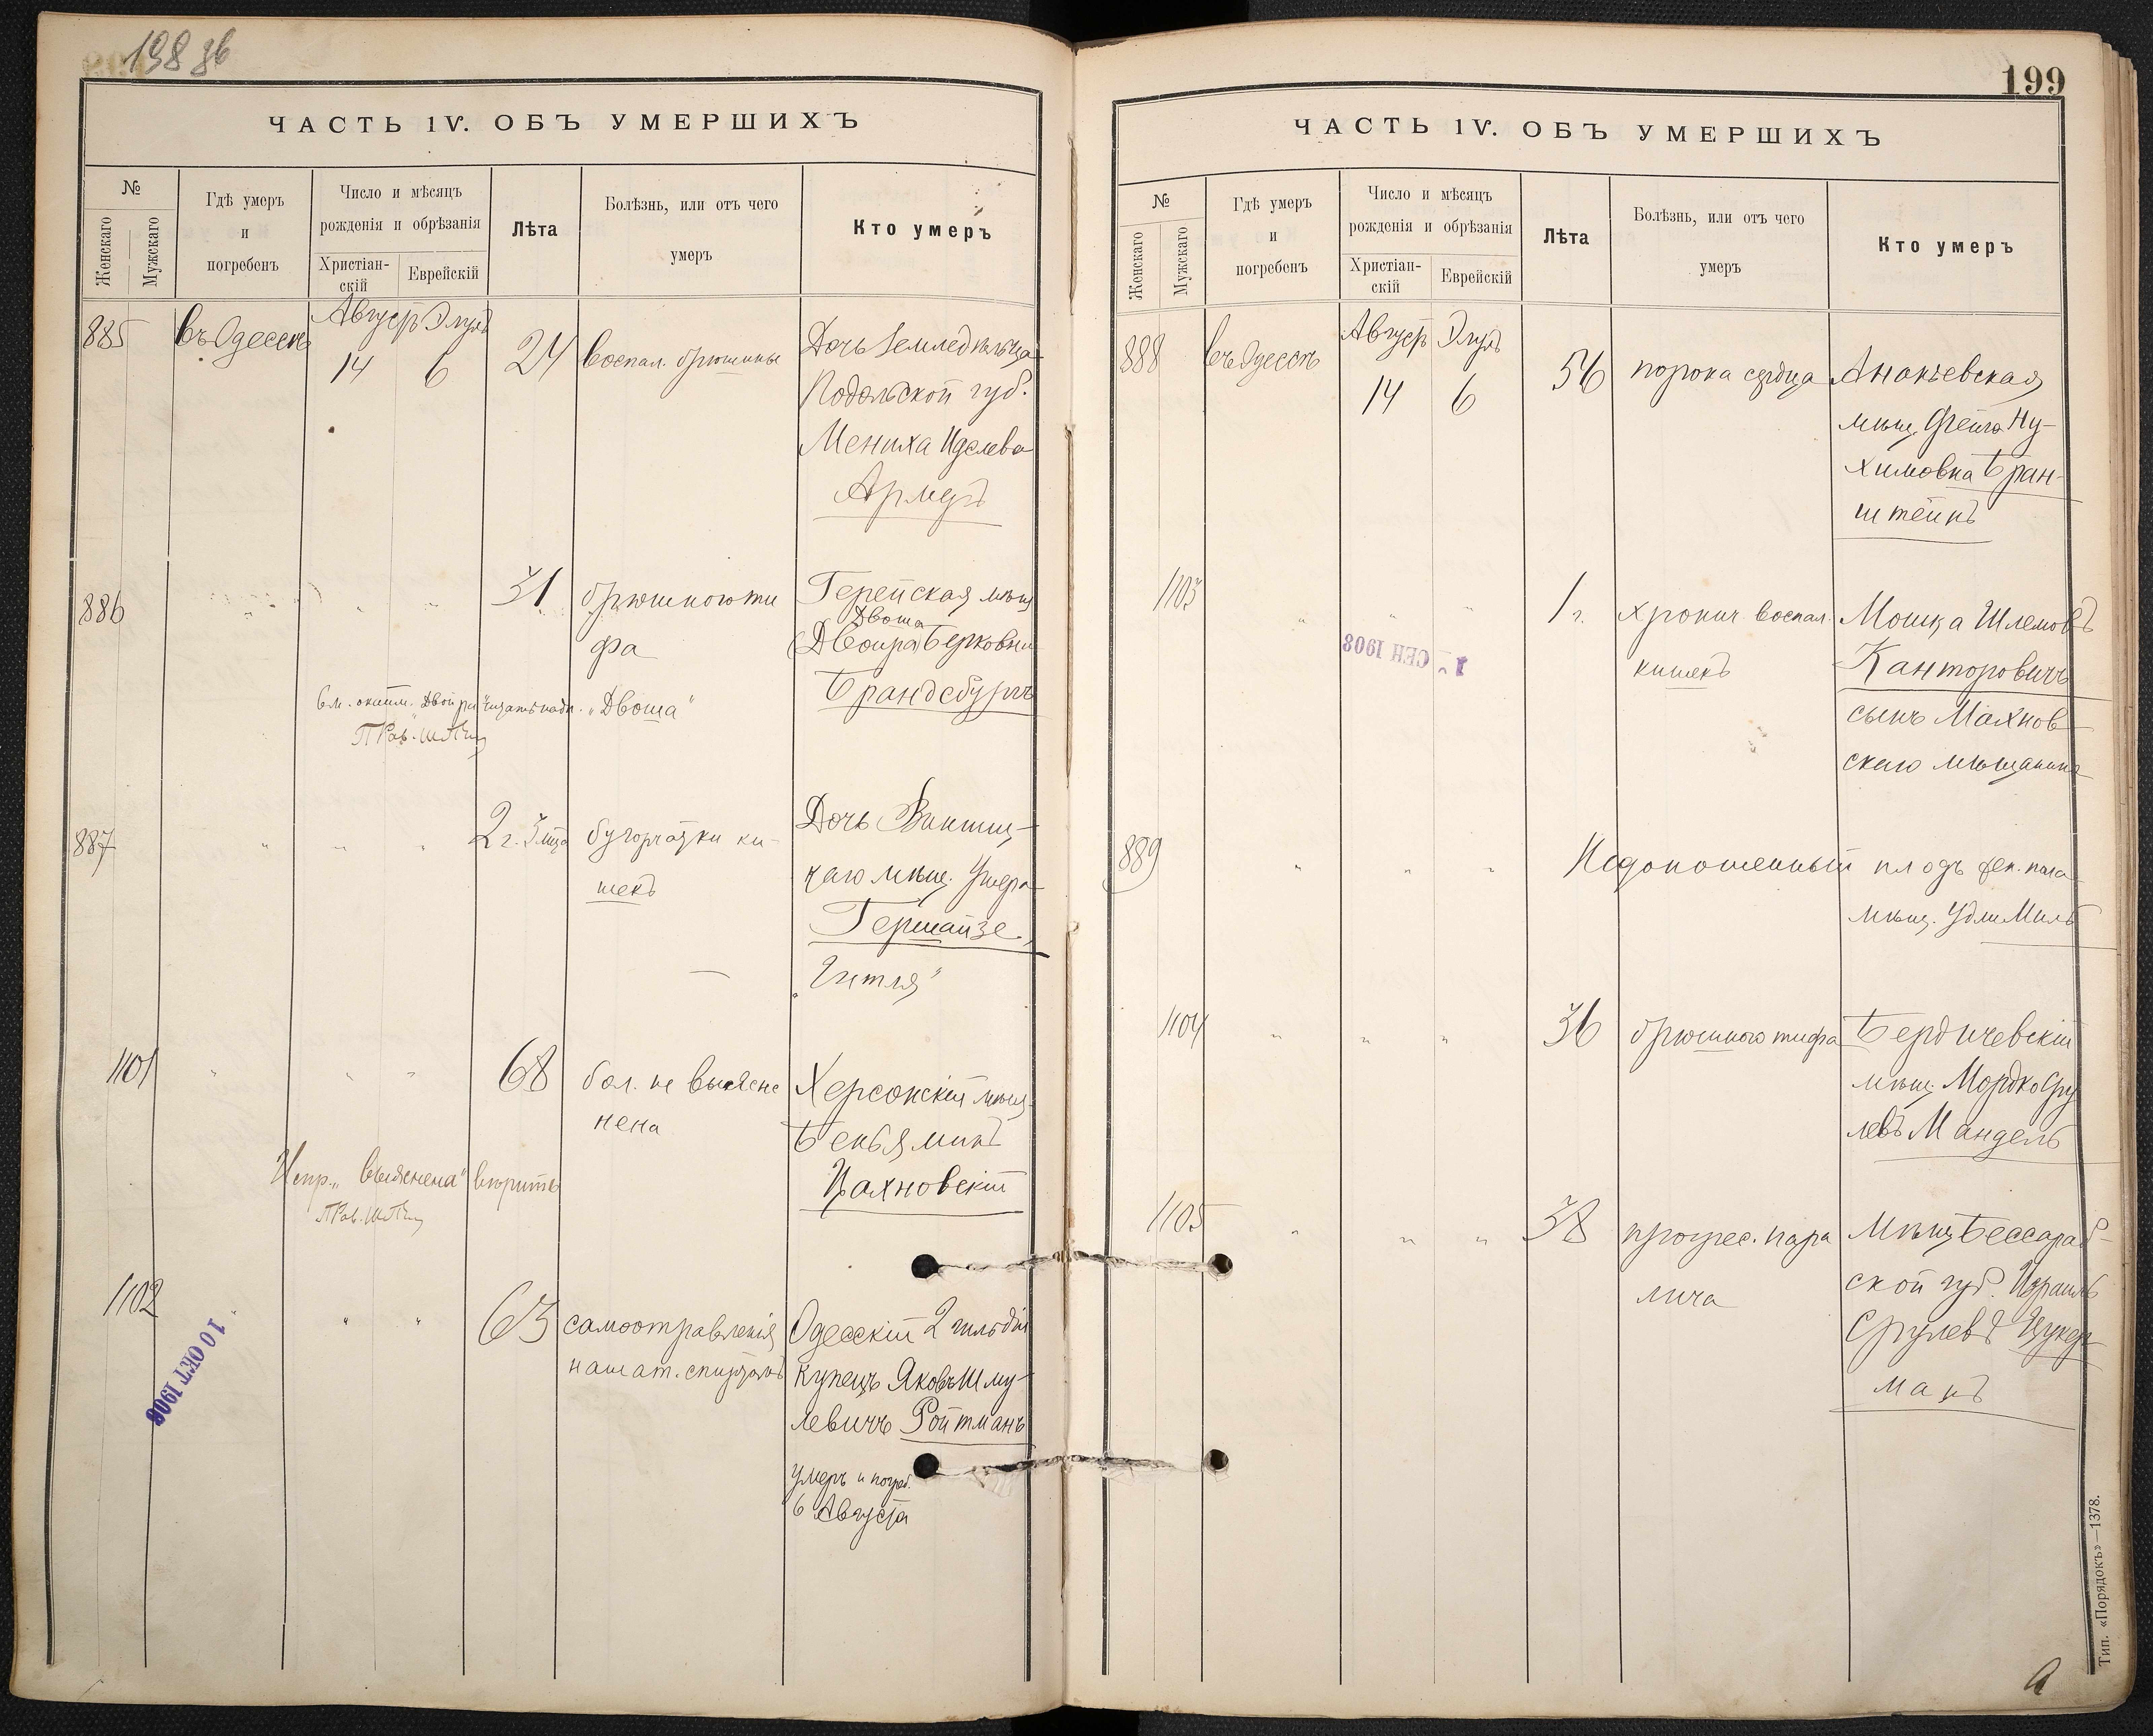 198 зв
ЧАСТЬ IV. ОБЪ УМЕРШИХЪ
№
Женскаго
Мужскаго
Гдѣ умеръ
и
погребенъ
Число и мѣсяцъ
рожденія и обрѣзанія
Христіан-
скій
Еврейскій
Лѣта
Болѣзнь, или отъ чего
умеръ
Кто умеръ
885 въ Одессѣ Август Элулъ
14 6 24 воспал. брюшины Дочь Земледѣльца
Подольской губ.
Мениха Иделева
Армедъ
886 " " 31 брюшного ти
фа
мѣщ
Двоша
(Двойра) Берковна
Брандсбургъ
Вм. Двойра читать надп. „Двоша"
887 " " " 2 г. 3 мца бугорчатки ки-
шекъ
Дочь
каго мѣщ. Ушера
Гершайзе
„Гитля"
1101 " " " 68 бол. не выясне
нена
Херсонскій мѣщ.
Беньяминъ
Цахновскій
Испр. „выяснена" вѣрить
1102 " " " 63 самоотравленія
нашат. спиртомъ
Одесскій 2 гильдіи
купецъ Яковъ Шму-
левичъ Ройтманъ
умеръ и погреб.
6 Августа
10 ОКТ 1908
199
ЧАСТЬ IV. ОБЪ УМЕРШИХЪ
№
Женскаго
Мужскаго
Гдѣ умеръ
и
погребенъ
Число и мѣсяцъ
рожденія и обрѣзанія
Христіан-
скій
Еврейскій
Лѣта
Болѣзнь, или отъ чего
умеръ
Кто умеръ
888 въ Одессѣ Август Элулъ
14 6 56 порока сердца Ананьевская
мѣщ. Фейга Ну-
химовна Бран-
штейнъ
1103 " " " 1 г. хронич воспал.
кишекъ
Мошка Шлемовъ
Канторовичъ
сынъ Махнов-
скаго мѣщанина
1 СЕН 1908
889 " " " Недоношенный плодъ жен. пола
мѣщ. Удли Миль
1104 " " " 36 брюшного тифа Бердичевскій
мѣщ. Мордко Сру
левъ Мандель
1105 " " " 38 прогрес. пара
лича
Мѣщ Бессараб-
ской губ. Израиль
Срулевъ Цукер
манъ
Тип. «Порядокъ»—1378.